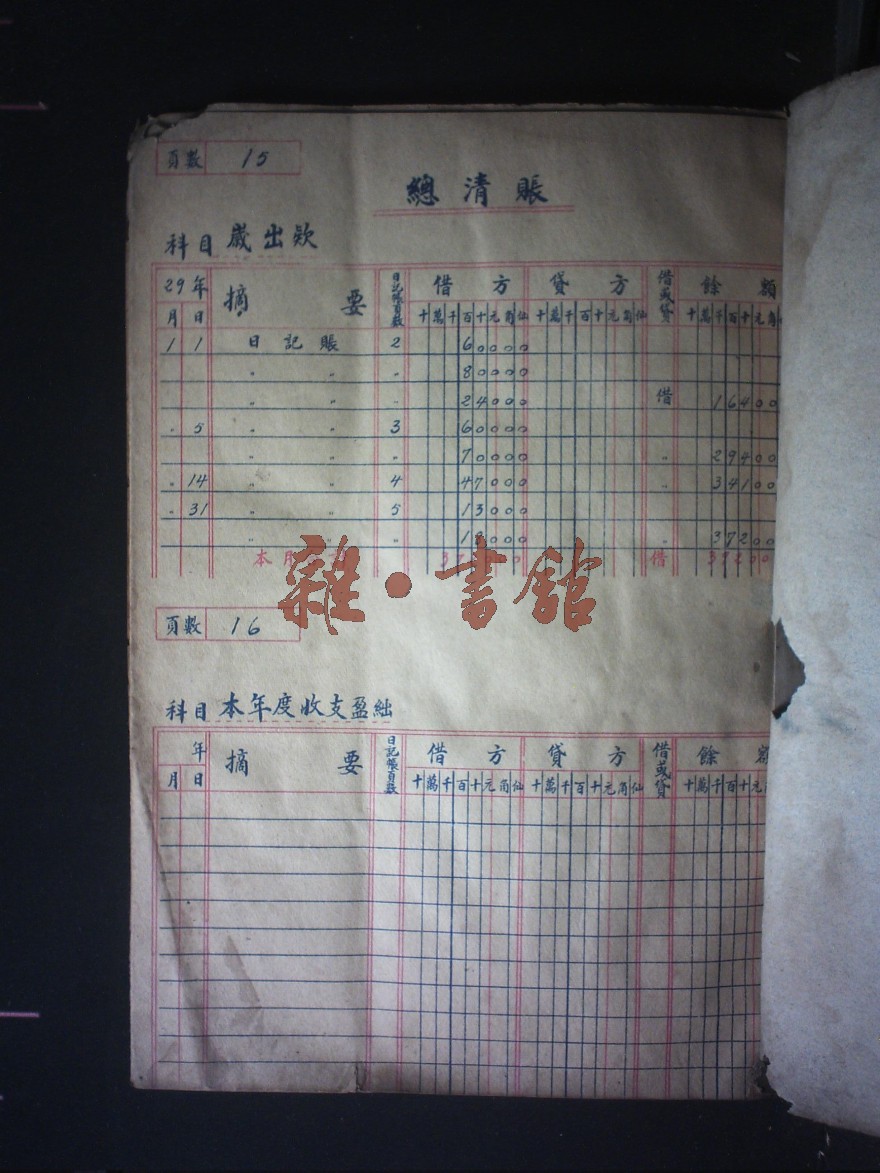 頁數 15
總清賬
科目 歲出欵
29年 摘要 日記帳頁數 借方 貸方 借或貸 餘額
月 日 十萬千百十元角仙 十萬千百十元角仙 十萬千百十元角
1 1 日記賬 2 60000
〃 〃 〃 80000
〃 〃 〃 24000 借 16400
〃 5 〃 〃 3 60000
〃 〃 70000 〃 29400
〃 14 〃 〃 4 47000 〃 34100
〃 31 〃 〃 5 13000
〃 〃 000 〃 37200
本月 借 37200
雜·書館
頁數 16
科目 本年度收支盈絀
年 摘要 日記帳頁數 借方 貸方 借或貸 餘額
月 日 十萬千百十元角仙 十萬千百十元角仙 十萬千百十元